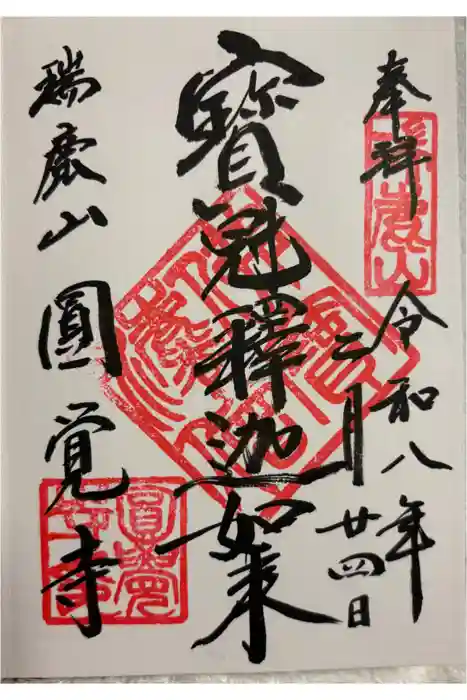 奉拝
瑞鹿山
令和八年
二月廿四日
寶冠釋迦如来
瑞鹿山 圓覚寺